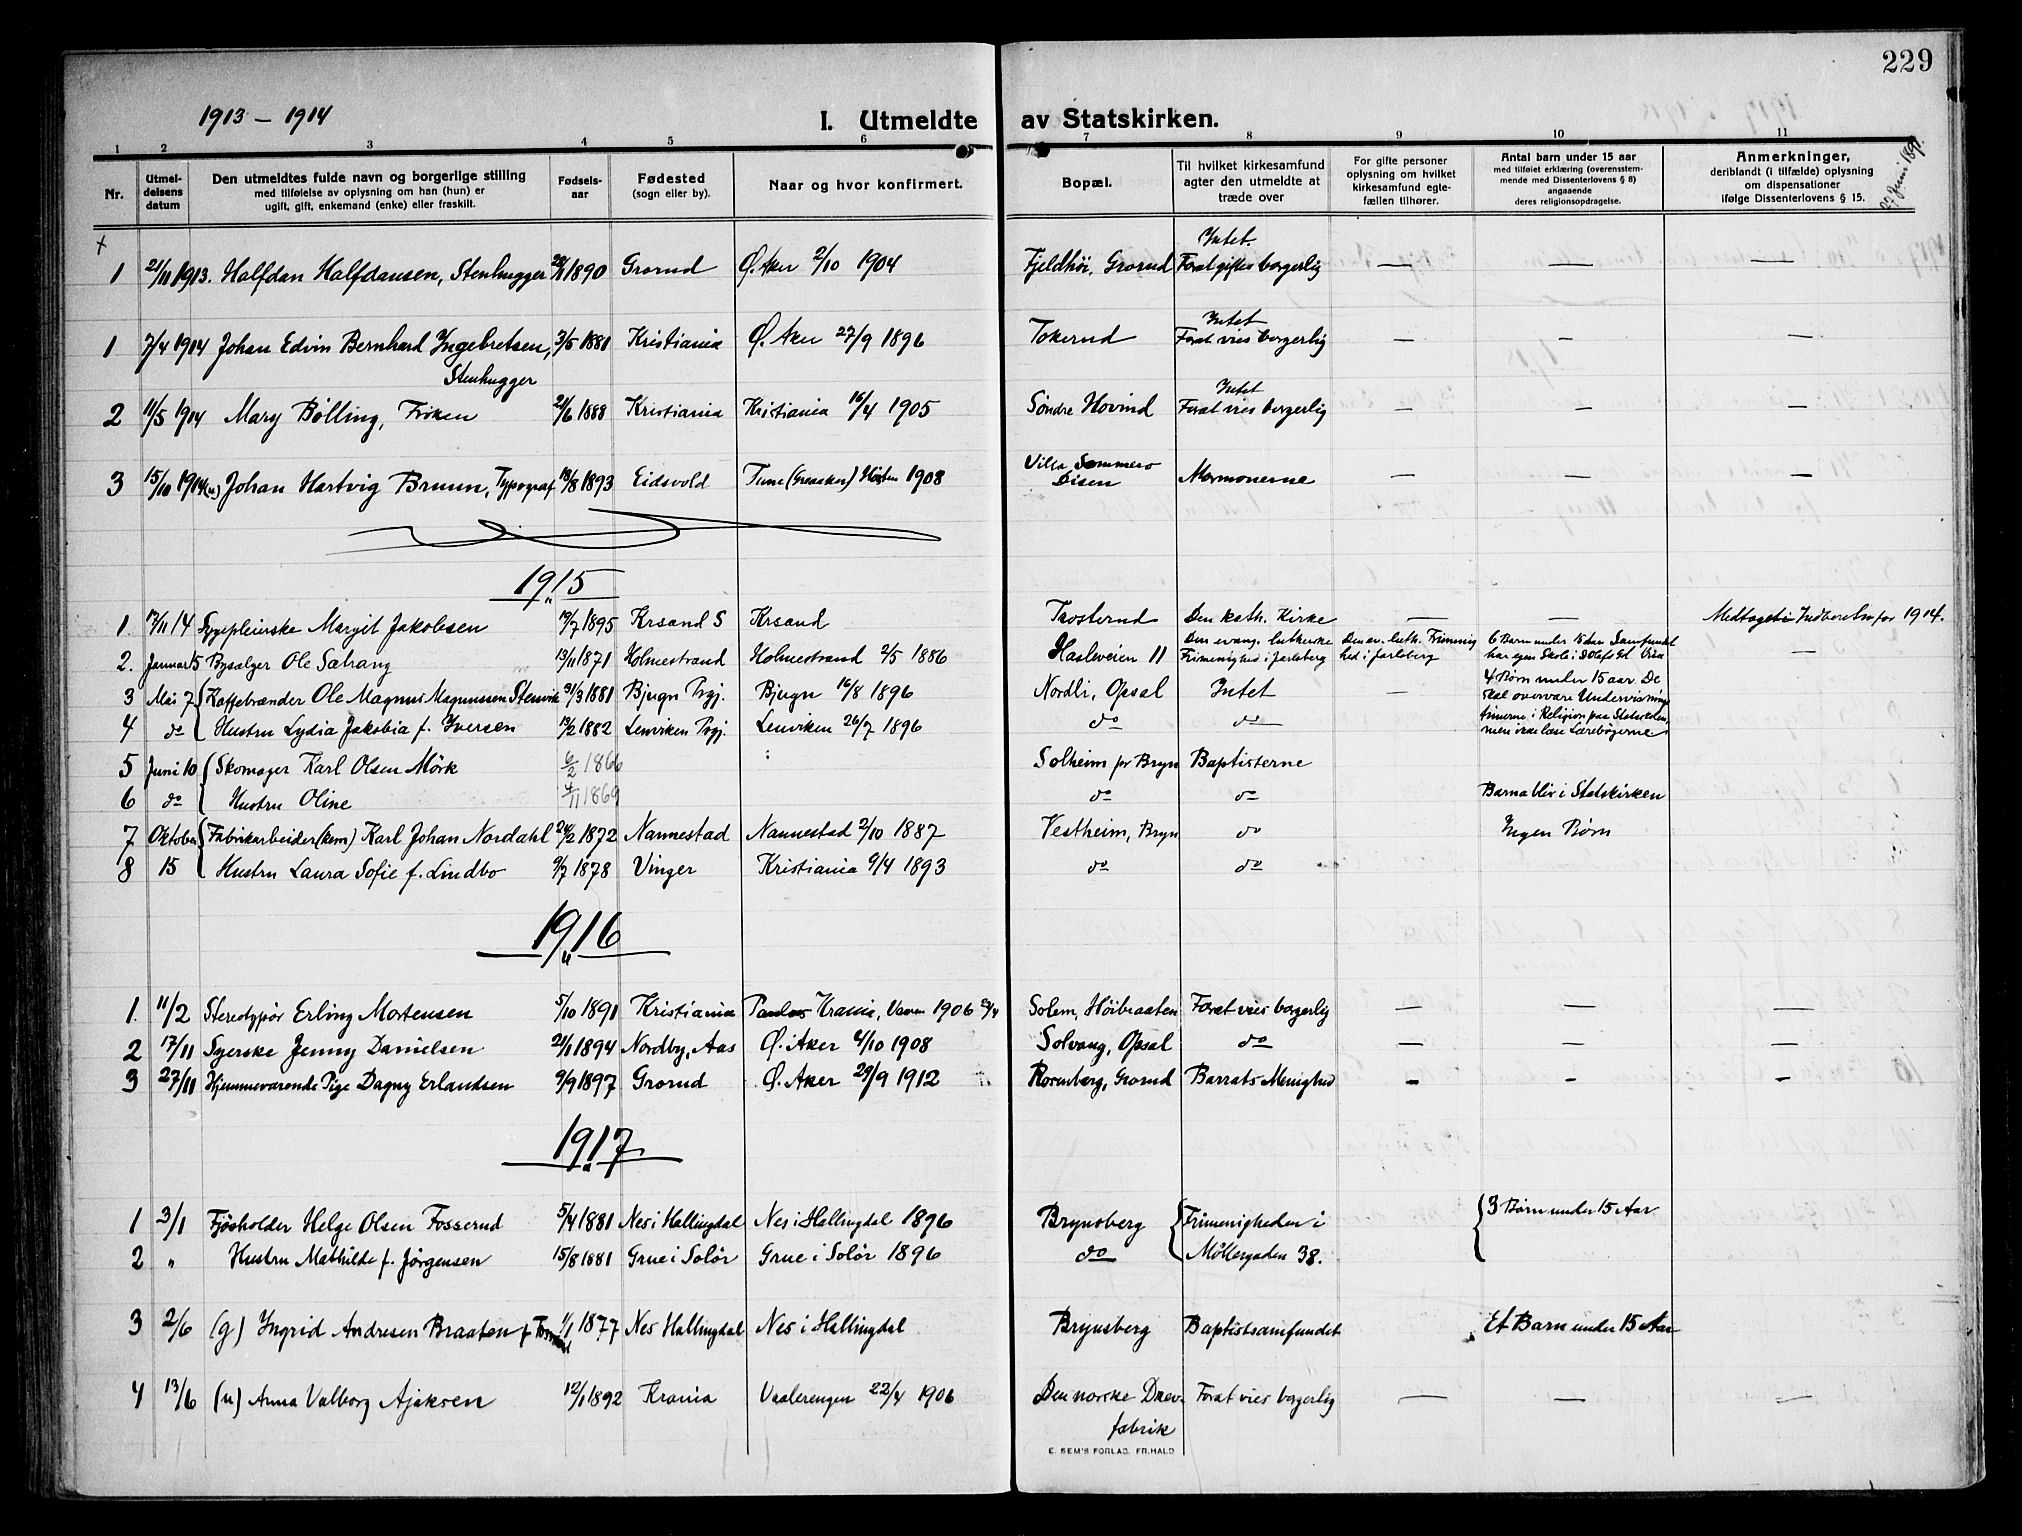 229
1913 – 1914
I. Utmeldte av Statskirken.
1 2 3 4 5 6 7 8 9 10 11
Nr. | Utmeldelsens datum | Den utmeldtes fulde navn og borgerlige stilling med tilføielse av oplysning om han (hun) er ugift, gift, enkemand (enke) eller fraskilt. | Fødselsaar | Fødested (sogn eller by). | Naar og hvor konfirmert. | Bopæl. | Til hvilket kirkesamfund agter den utmeldte at træde over | For gifte personer oplysning om hvilket kirkesamfund egtefællen tilhører. | Antal barn under 15 aar med tilføiet erklæring (overensstemmende med Dissenterlovens § 8) angaaende deres religionsopdragelse. | Anmerkninger, deriblandt (i tilfælde) oplysning om dispensationer ifølge Dissenterlovens § 15. 27 Juni 1891.
x
1 21/11 1913. Halfdan Halfdansen, Stenhugger 1890 Grorud Ø. Aker 2/10 1904 Fjeldhöi, Grorud Intet. Forat giftes borgerlig — — —
1 7/4 1914 Johan Edvin Bernhard Ingebretsen, Stenhugger 3/5 1881 Kristiania Ø. Aker 27/9 1896 Tokerud Intet Forat vies borgerlig — — —
2 11/5 1914 Mary Bølling, Frøken 21/6 1888 Kristiania Kristiania 16/4 1905 Søndre Hovind Intet Forat vies borgerlig — — —
3 15/10 1914 (u) Johan Hartvig Bruun, Typograf 13/8 1893 Eidsvold Tune (Greaaker) Høsten 1908 Villa Sommero Disen Mormonerne — — —
1915
1. 17/11 14 Sygepleierske Margit Jakobsen 19/7 1895 Krsand S Krsand Trosterud Den kath. Kirke — — Medtaget i Indberetn. for 1914.
2. Januar 15 Bysælger Ole Sælrang 13/11 1871 Holmestrand Holmestrand 2/5 1886 Hasleveien 11 Den evang. lutherske Frimenighed i Jarlsberg Den ev. luth. Frimenighed i Jarlsberg 6 Barn under 15 Aar Samfundet har egen Skole i St Olafs Gd Vika —
3 Mai 7 { Kaffebrænder Ole Magnus Magnussen Stenvik 31/3 1881 Bjugn Prgj. Bjugn 16/8 1896 Nordli, Opsal Intet — 4 Børn under 15 aar. De skal overvære Undervisningstimerne i Religion paa Skolen, men ikke læse Lærebøgerne
4 do Hustru Lydia Jakobia f. Iversen 13/2 1882 Lenviken Prgj. Lenviken 26/7 1896 do do
5 Juni 10 { Skomager Karl Olsen Mörk 6/2 1866 Solheim pr Bryn Baptisterne
6 do Hustru Oline 4/11 1869 do do Barna bliv i Statskirken
7 Oktober { Fabrikarbeider (kem) Karl Johan Nordahl 24/2 1872 Nannestad Nannestad 2/10 1887 Vestheim, Bryn do Ingen Børn
8 15 Hustru Laura Sofie f. Lindbo 9/7 1878 Vinger Kristiania 9/4 1893 do do
1916
1. 11/2 Stereotypør Erling Mortensen 5/10 1891 Kristiania Krania, 1906 Solem, Höibraaten Forat vies borgerlig — — —
2 17/11 Syerske Jenny Danielsen 21/1 1894 Nordby, Aas Ø. Aker 4/10 1908 Solvang, Opsal do — — —
3 27/11 Hjemmeværende Pige Dagny Erlandsen 9/9 1897 Grorud Ø. Aker 29/9 1912 Rosenberg, Grorud Barrats Menighed – – –
1917
1 3/1 Fjösholder Helge Olsen Fosserud 5/4 1881 Nes i Hallingdal Nes i Hallingdal 1896 Brynsberg { Frimenigheden i { 3 Børn under 15 Aar
2 " Hustru Mathilde f. Jørgensen 15/8 1881 Grue i Solör Grue i Solör 1896 do Möllergaden 38.
3 2/6 (g) Ingrid Andresen Braaten 1/1 1877 Nes Hallingdal Nes i Hallingdal Brynsberg Baptistsamfundet Et Barn under 15 Aar
4 13/6 (u) Anna Valborg Ajaksen 12/1 1892 Krania Vaalerengen 22/4 1906 Den norske Drevfabrik Forat vies borgerlig — — —
E. SEM'S FORLAG. FR.HALD